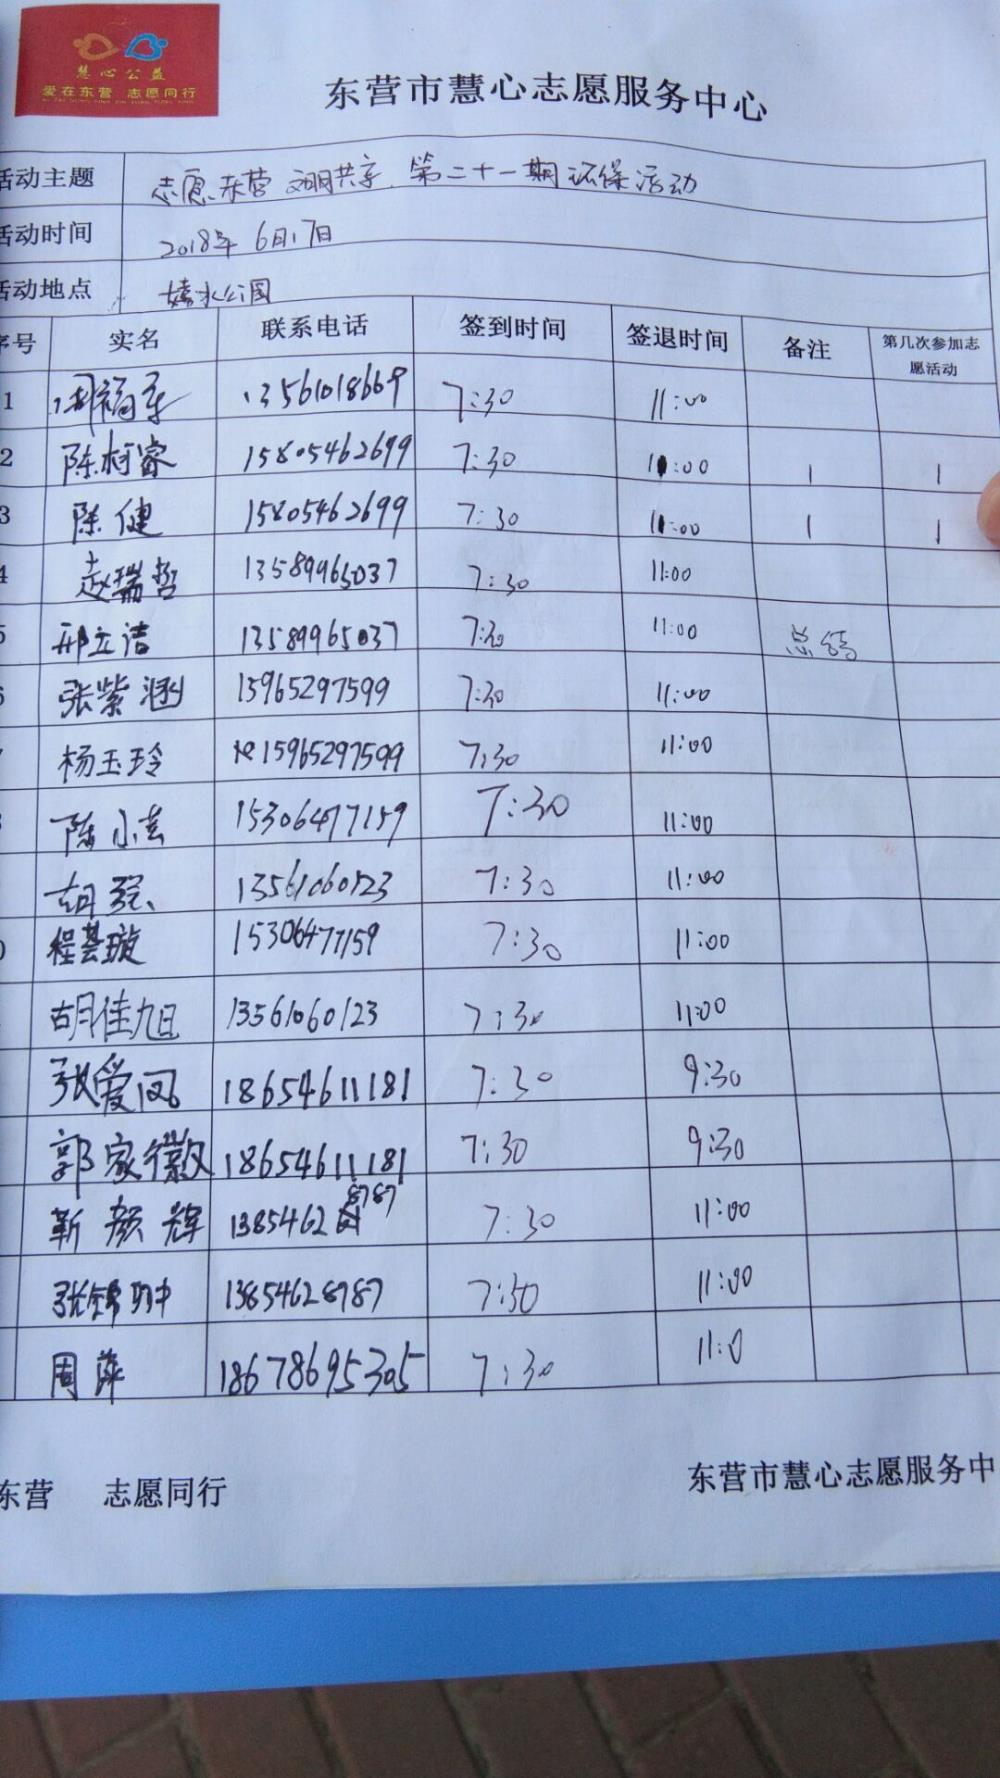 慧心公益
爱在东营 志愿同行
东营市慧心志愿服务中心
活动主题 志愿东营 文明共享 第二十一期环保活动
活动时间 2018年6月17日
活动地点 嬉水公园
序号 实名 联系电话 签到时间 签退时间 备注 第几次参加志愿活动
1 13561018669 7:30 11:00
2 陈柯睿 15805462699 7:30 11:00 1 1
3 陈健 15805462699 7:30 11:00 1 1
4 赵瑞哲 13589965037 7:30 11:00
5 邢立洁 13589965037 7:30 11:00 总结
6 张紫涵 15965297599 7:30 11:00
7 杨玉玲 15965297599 7:30 11:00
陈小芸 15306477159 7:30 11:00
胡强 13561060123 7:30 11:00
0 程荟璇 15306477159 7:30 11:00
胡佳旭 13561060123 7:30 11:00
张爱凤 18654611181 7:30 9:30
郭家徽 18654611181 7:30 9:30
靳颜辉 13854628787 7:30 11:00
张锦翀 13854628787 7:30 11:00
周萍 18678695305 7:30 11:0
东营 志愿同行
东营市慧心志愿服务中